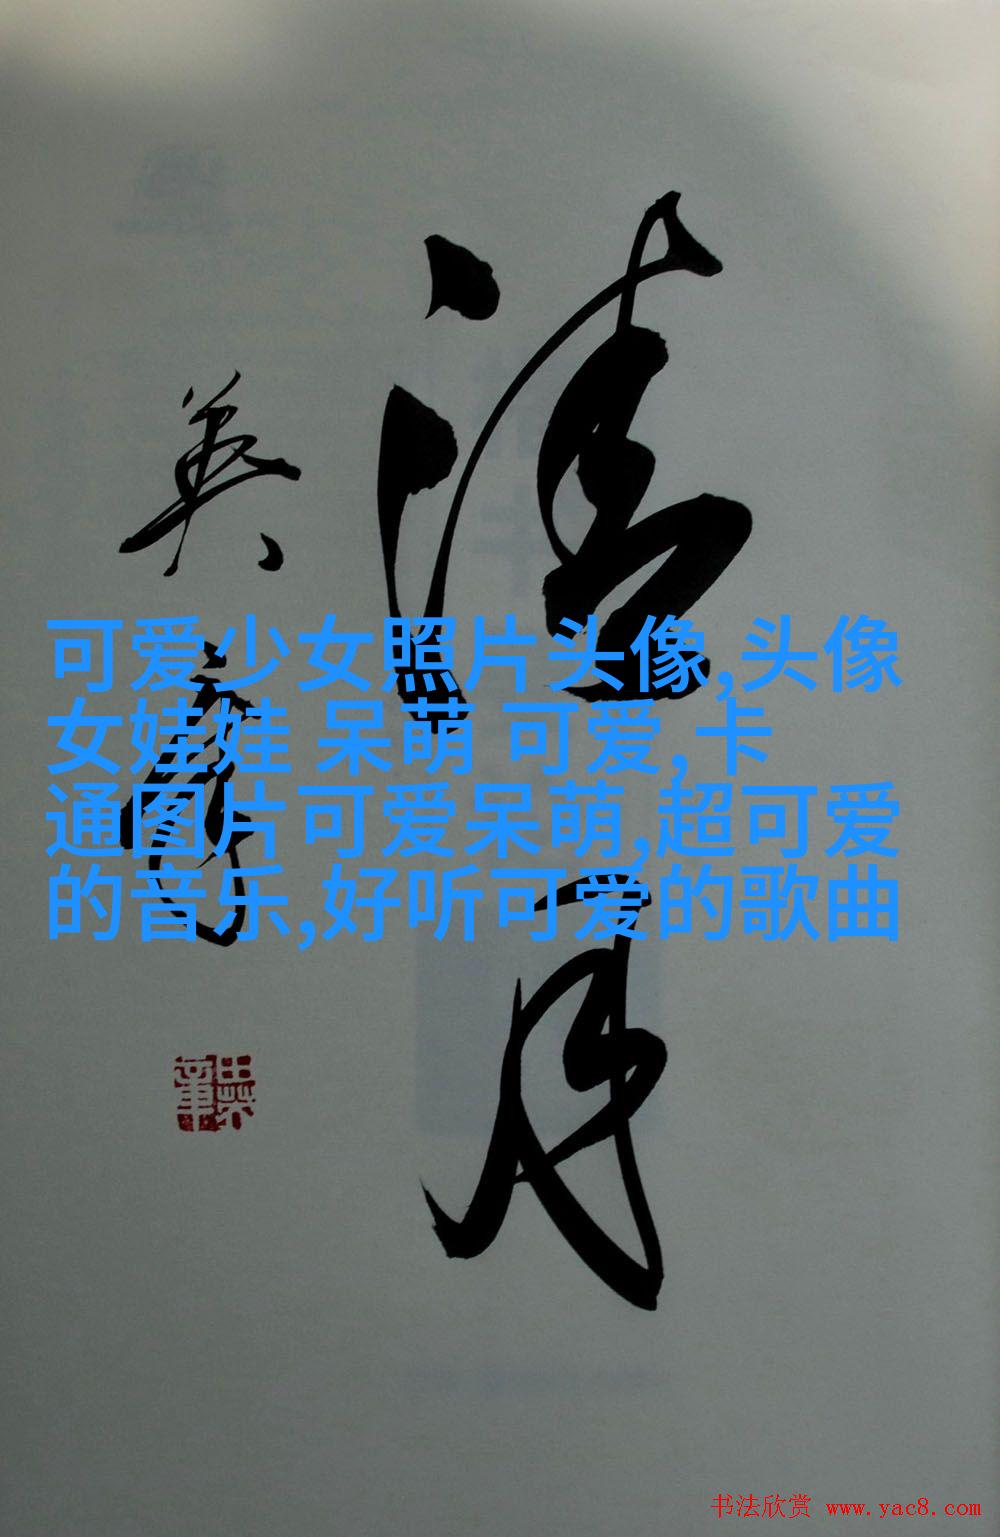 清月
英章
田英章
可爱少女照片头像,头像
女娃娃 呆萌 可爱,卡
通图片可爱呆萌,超可爱
的音乐,好听可爱的歌曲
书法欣赏 www.yac8.com